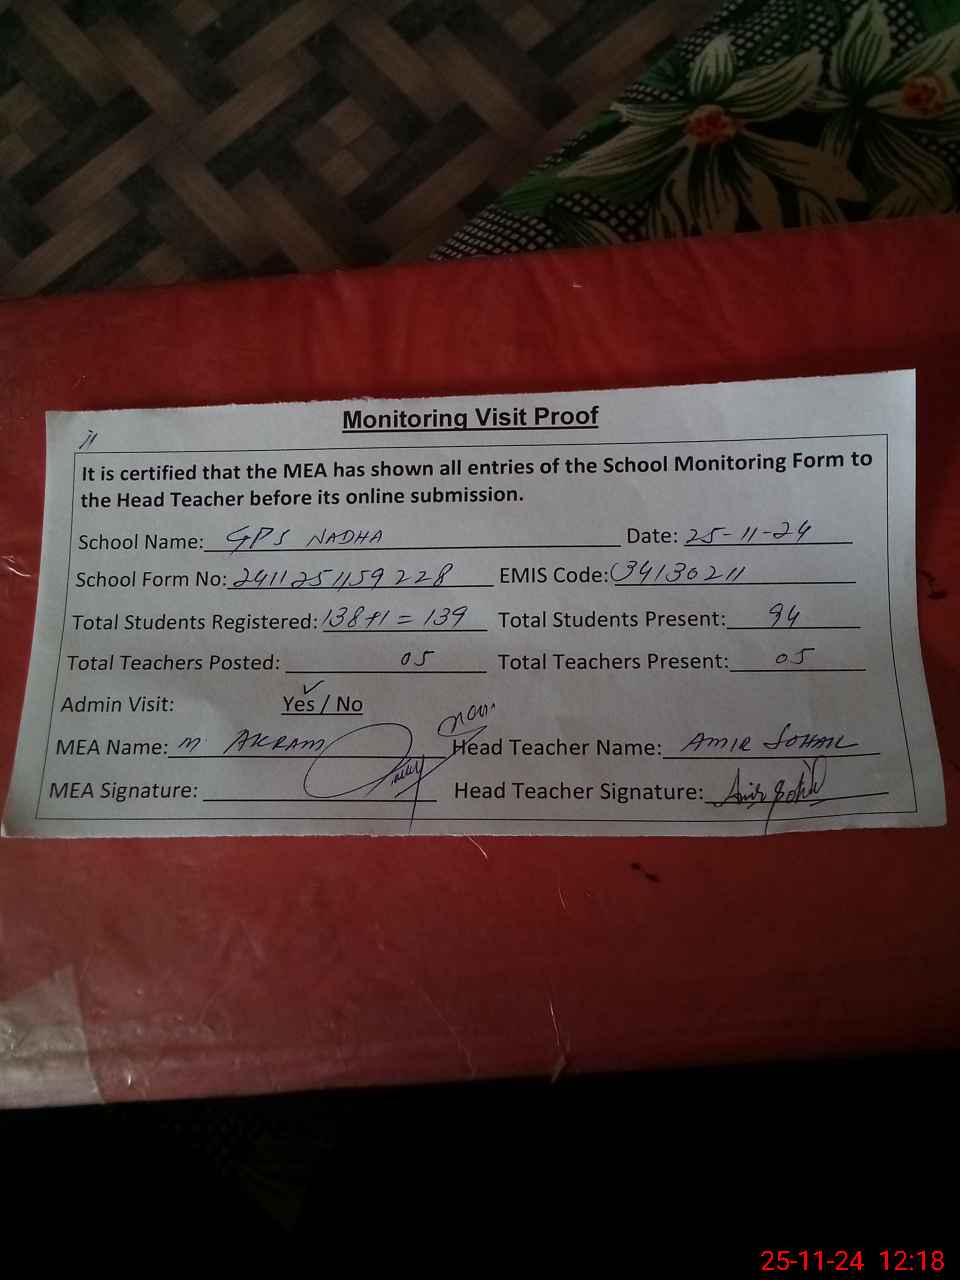 Monitoring Visit Proof
It is certified that the MEA has shown all entries of the School Monitoring Form to
the Head Teacher before its online submission.
School Name: GPS NADHA Date: 25-11-24
School Form No: 2411251159228 EMIS Code: 34130211
Total Students Registered: 138+1 = 139 Total Students Present: 94
Total Teachers Posted: 05 Total Teachers Present: 05
Admin Visit: Yes / No
MEA Name: M. AKRAM Head Teacher Name: AMIR SOHAIL
MEA Signature: Head Teacher Signature: Amir Sohail
25-11-24 12:18